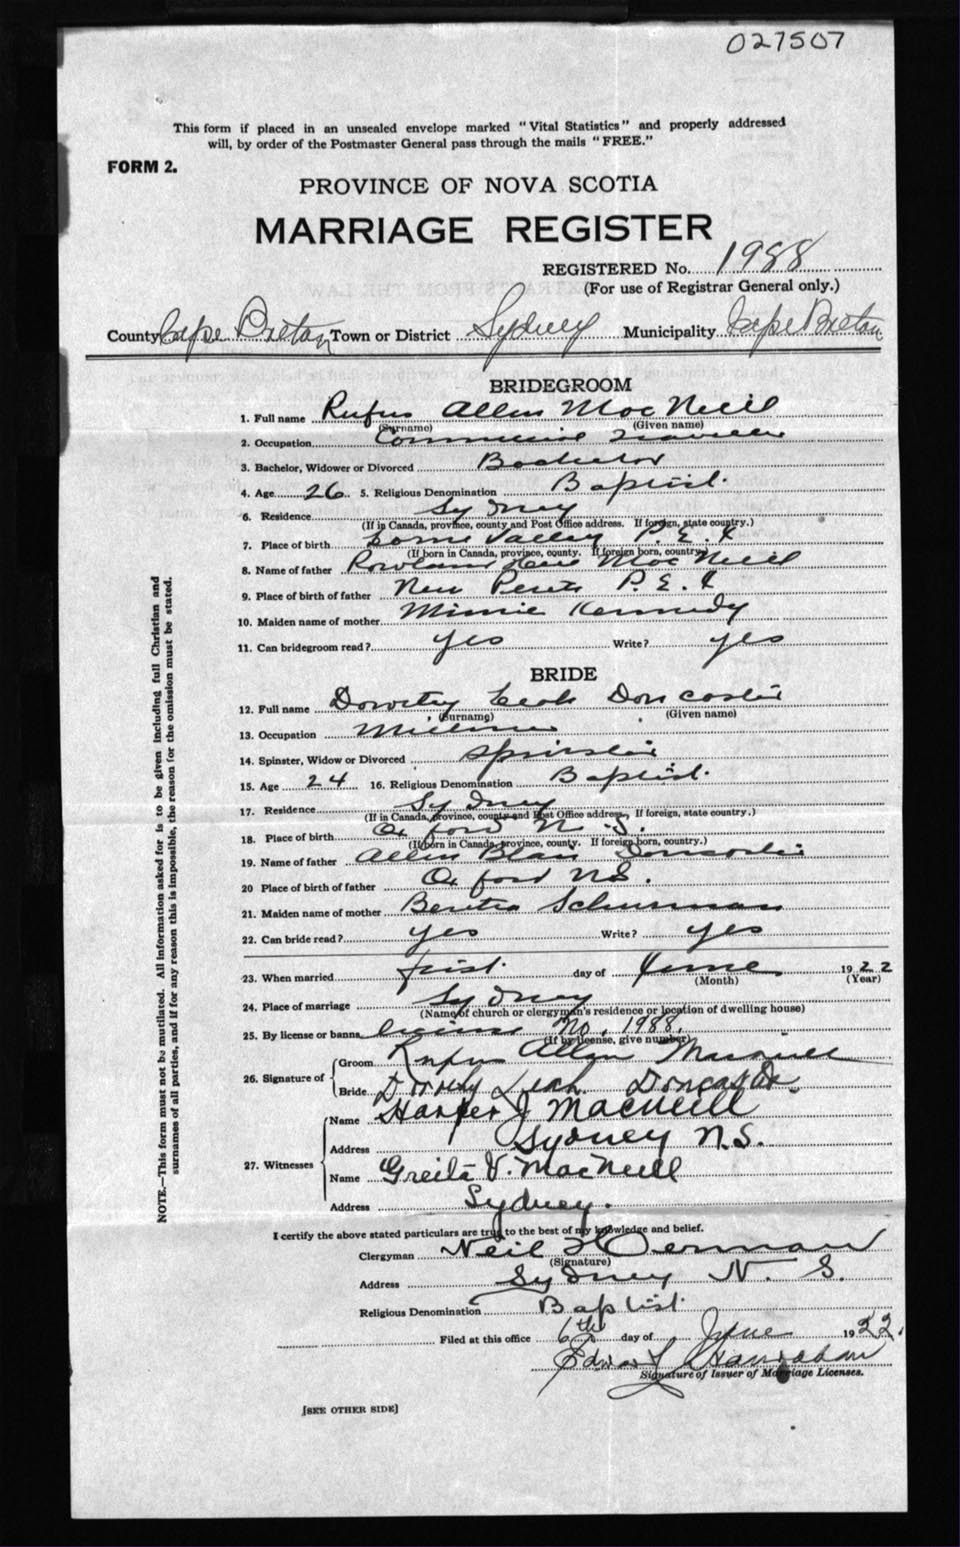 027507
This form if placed in an unsealed envelope marked "Vital Statistics" and properly addressed
will, by order of the Postmaster General pass through the mails "FREE."
FORM 2.
PROVINCE OF NOVA SCOTIA
MARRIAGE REGISTER
REGISTERED No. 1988
(For use of Registrar General only.)
County Cape Breton Town or District Sydney Municipality Cape Breton
BRIDEGROOM
1. Full name Rufus Allen MacNeill
(Surname) (Given name)
2. Occupation Commercial Traveller
3. Bachelor, Widower or Divorced Bachelor
4. Age 26 5. Religious Denomination Baptist.
6. Residence Sydney
(If in Canada, province, county and Post Office address. If foreign, state country.)
7. Place of birth Lorne Valley P.E.I
(If born in Canada, province, county. If foreign born, country)
8. Name of father MacNeill
9. Place of birth of father New Perth P.E.I
10. Maiden name of mother Minnie Kennedy
11. Can bridegroom read? yes Write? yes
BRIDE
12. Full name Dorothy Leah Doncaster
(Surname) (Given name)
13. Occupation Milliner
14. Spinster, Widow or Divorced Spinster
15. Age 24 16. Religious Denomination Baptist.
17. Residence Sydney
(If in Canada, province, county and Post Office address, If foreign, state country.)
18. Place of birth Oxford N.S.
(If born in Canada, province, county. If foreign born, country.)
19. Name of father Allen Blair Doncaster
20 Place of birth of father Oxford N.S.
21. Maiden name of mother Bertha Schurman
22. Can bride read? yes Write? yes
23. When married first. day of June 1922
(Month) (Year)
24. Place of marriage Sydney
(Name of church or clergyman's residence or location of dwelling house)
25. By license or banns license No. 1988.
(If by license, give number)
26. Signature of Groom Rufus Allen Macneill
Bride Dorothy Leah Doncaster.
27. Witnesses Name Harper J MacNeill
Address Sydney N.S.
Name Greita V. MacNeill
Address Sydney.
I certify the above stated particulars are true to the best of my knowledge and belief.
Clergyman Neil Herman
(Signature)
Address Sydney N. S.
Religious Denomination Baptist.
Filed at this office 6th day of June 1922.
Edward Hanrahan
Signature of Issuer of Marriage Licenses.
[SEE OTHER SIDE]
NOTE.—This form must not be mutilated. All information asked for is to be given including full Christian and
surnames of all parties, and if for any reason this is impossible, the reason for the omission must be stated.